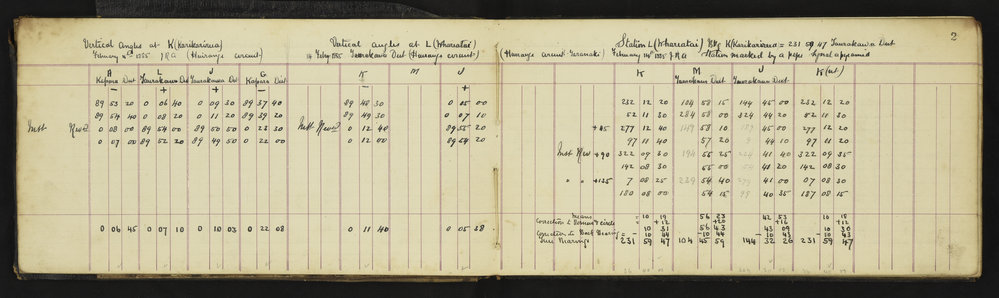 2
Vertical Angles at K (Karikariroa)
February 4th 1885 J R A (Haurage circuit)
A L J G
Kapara Dist Taurakawa Dist Taurakawa Dist Kapara Dist
- + + -
89 53 20 0 06 40 0 09 30 89 37 40
89 54 40 0 08 20 0 11 20 89 39 20
Inst Rev'd 0 08 00 89 54 00 89 50 50 0 23 30
0 07 00 89 52 20 89 49 50 0 22 00
0 06 45 0 07 10 0 10 03 0 22 08
Vertical angles at L (Wharatai)
14 Feby 1885 Taurakawa Dist
K M J
- +
89 48 30 0 05 00
89 49 30 0 07 10
Inst Rev'd 0 12 40 89 55 20
0 12 00 89 54 20
0 11 40 0 05 38
Station L (Wharatai) Brg K (Karikariroa) = 231 59 47 Taurakawa Dist
February 14th 1885 J R A Station marked by a pipe
K M J K (int)
Taurakawa Dist Taurakawa Dist
232 12 20 104 58 15 144 45 00 232 12 20
52 11 30 284 58 00 324 44 20 52 11 30
+45 277 12 40 149 58 10 189 45 00 277 12 20
97 11 40 57 20 9 44 10 97 11 20
Inst Rev +90 322 09 30 194 55 25 234 41 40 322 09 35
142 08 30 55 00 54 41 20 142 08 30
" " +135 7 08 25 239 54 40 279 41 00 07 08 30
180 08 00 54 15 99 40 35 187 08 15
Means 10 19 56 23 42 53 10 18
Correction = +12 +20 +16 +12
10 31 56 43 43 09 10 30
Correction to Back Bearing = -10 44 -10 44 -10 43 -10 43
True Bearings 231 59 47 104 45 59 144 32 26 231 59 47